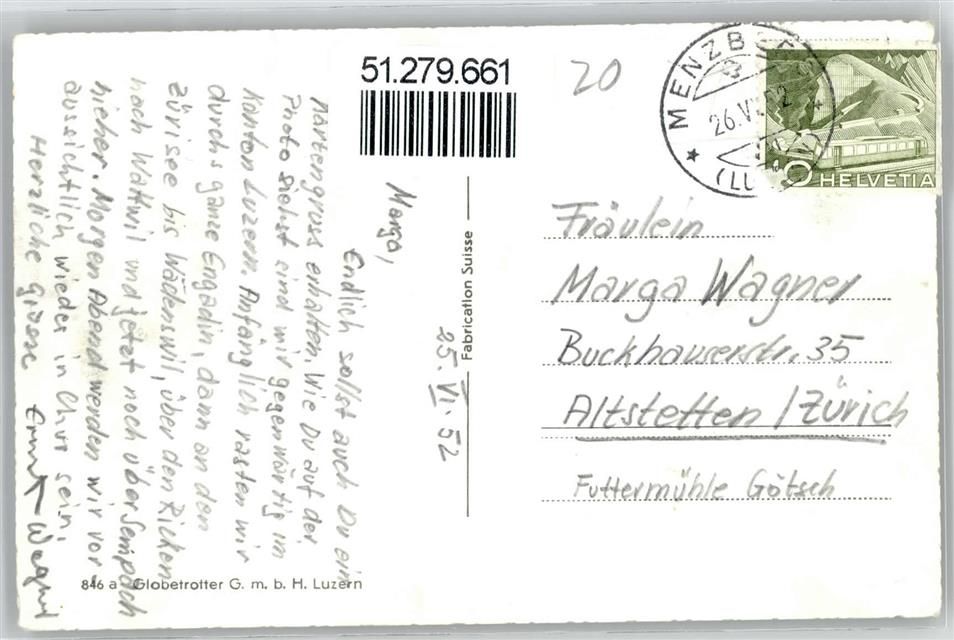 51.279.661
20
MENZB
26.VI.52
(LU
HELVETIA
25. VI. 52
Marga,
Endlich sollst auch Du ein
Kartengruss erhalten. Wie Du auf der
Photo siehst sind wir gegenwärtig im
Kanton Luzern. Anfänglich rasten wir
durchs ganze Engadin, dann an den
Zürisee bis Wädenswil, über den Ricken
nach Wattwil und jetzt noch über Sempach
hieher. Morgen Abend werden wir vor
aussichtlich wieder in Chur sein.
Herzliche Grüsse
Wagner
Fabrication Suisse
Fräulein
Marga Wagner
Buckhauserstr. 35
Altstetten / Zürich
Futtermühle Götsch
846 a Globetrotter G. m. b. H. Luzern